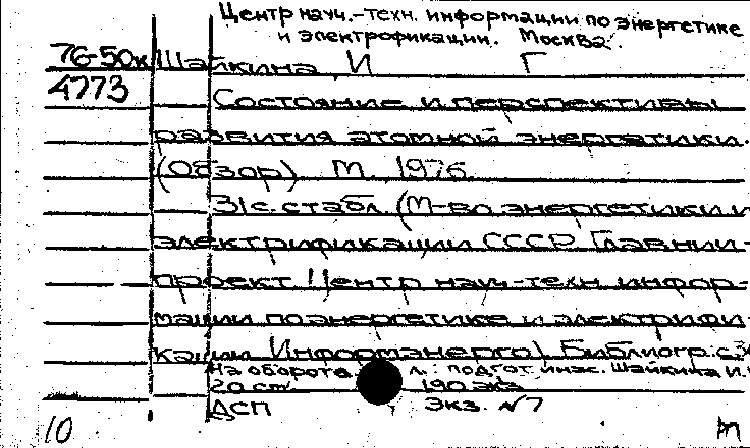 Центр науч.-техн. информации по энергетике
и электрофикации. Москва.
76-50к Шайкина И Г
4773
Состояние и перспективы
развития атомной энергетики.
(Обзор) М. 1976.
31 с. с табл. (М-во энергетики и
электрификации СССР Главнии-
проект Центр науч-техн инфор-
мации по энергетике и электрифи-
кации Информэнерго) Библиогр: с.
На обороте л.: подгот. инж. Шайкина И.
20 см. 190 экз
ДСП Экз. №7
10